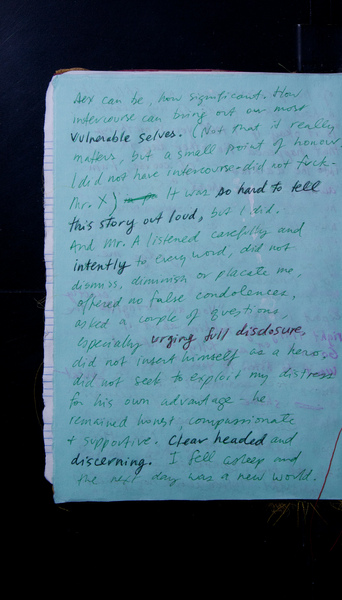 sex can be, how significant. How
intercourse can bring out our most
vulnerable selves. (Not that it really
matters, but a small point of honour,
I did not have intercourse - did not fuck -
Mr. X) It was so hard to tell
this story out loud, but I did.
And Mr. A listened carefully and
intently to every word, did not
dismiss, diminish or placate me,
offered no false condolences,
asked a couple of questions,
especially urging full disclosure,
did not insert himself as a hero,
did not seek to exploit my distress
for his own advantage - he
remained honest, compassionate
+ supportive. Clear headed and
discerning. I fell asleep and
the next day was a new world.